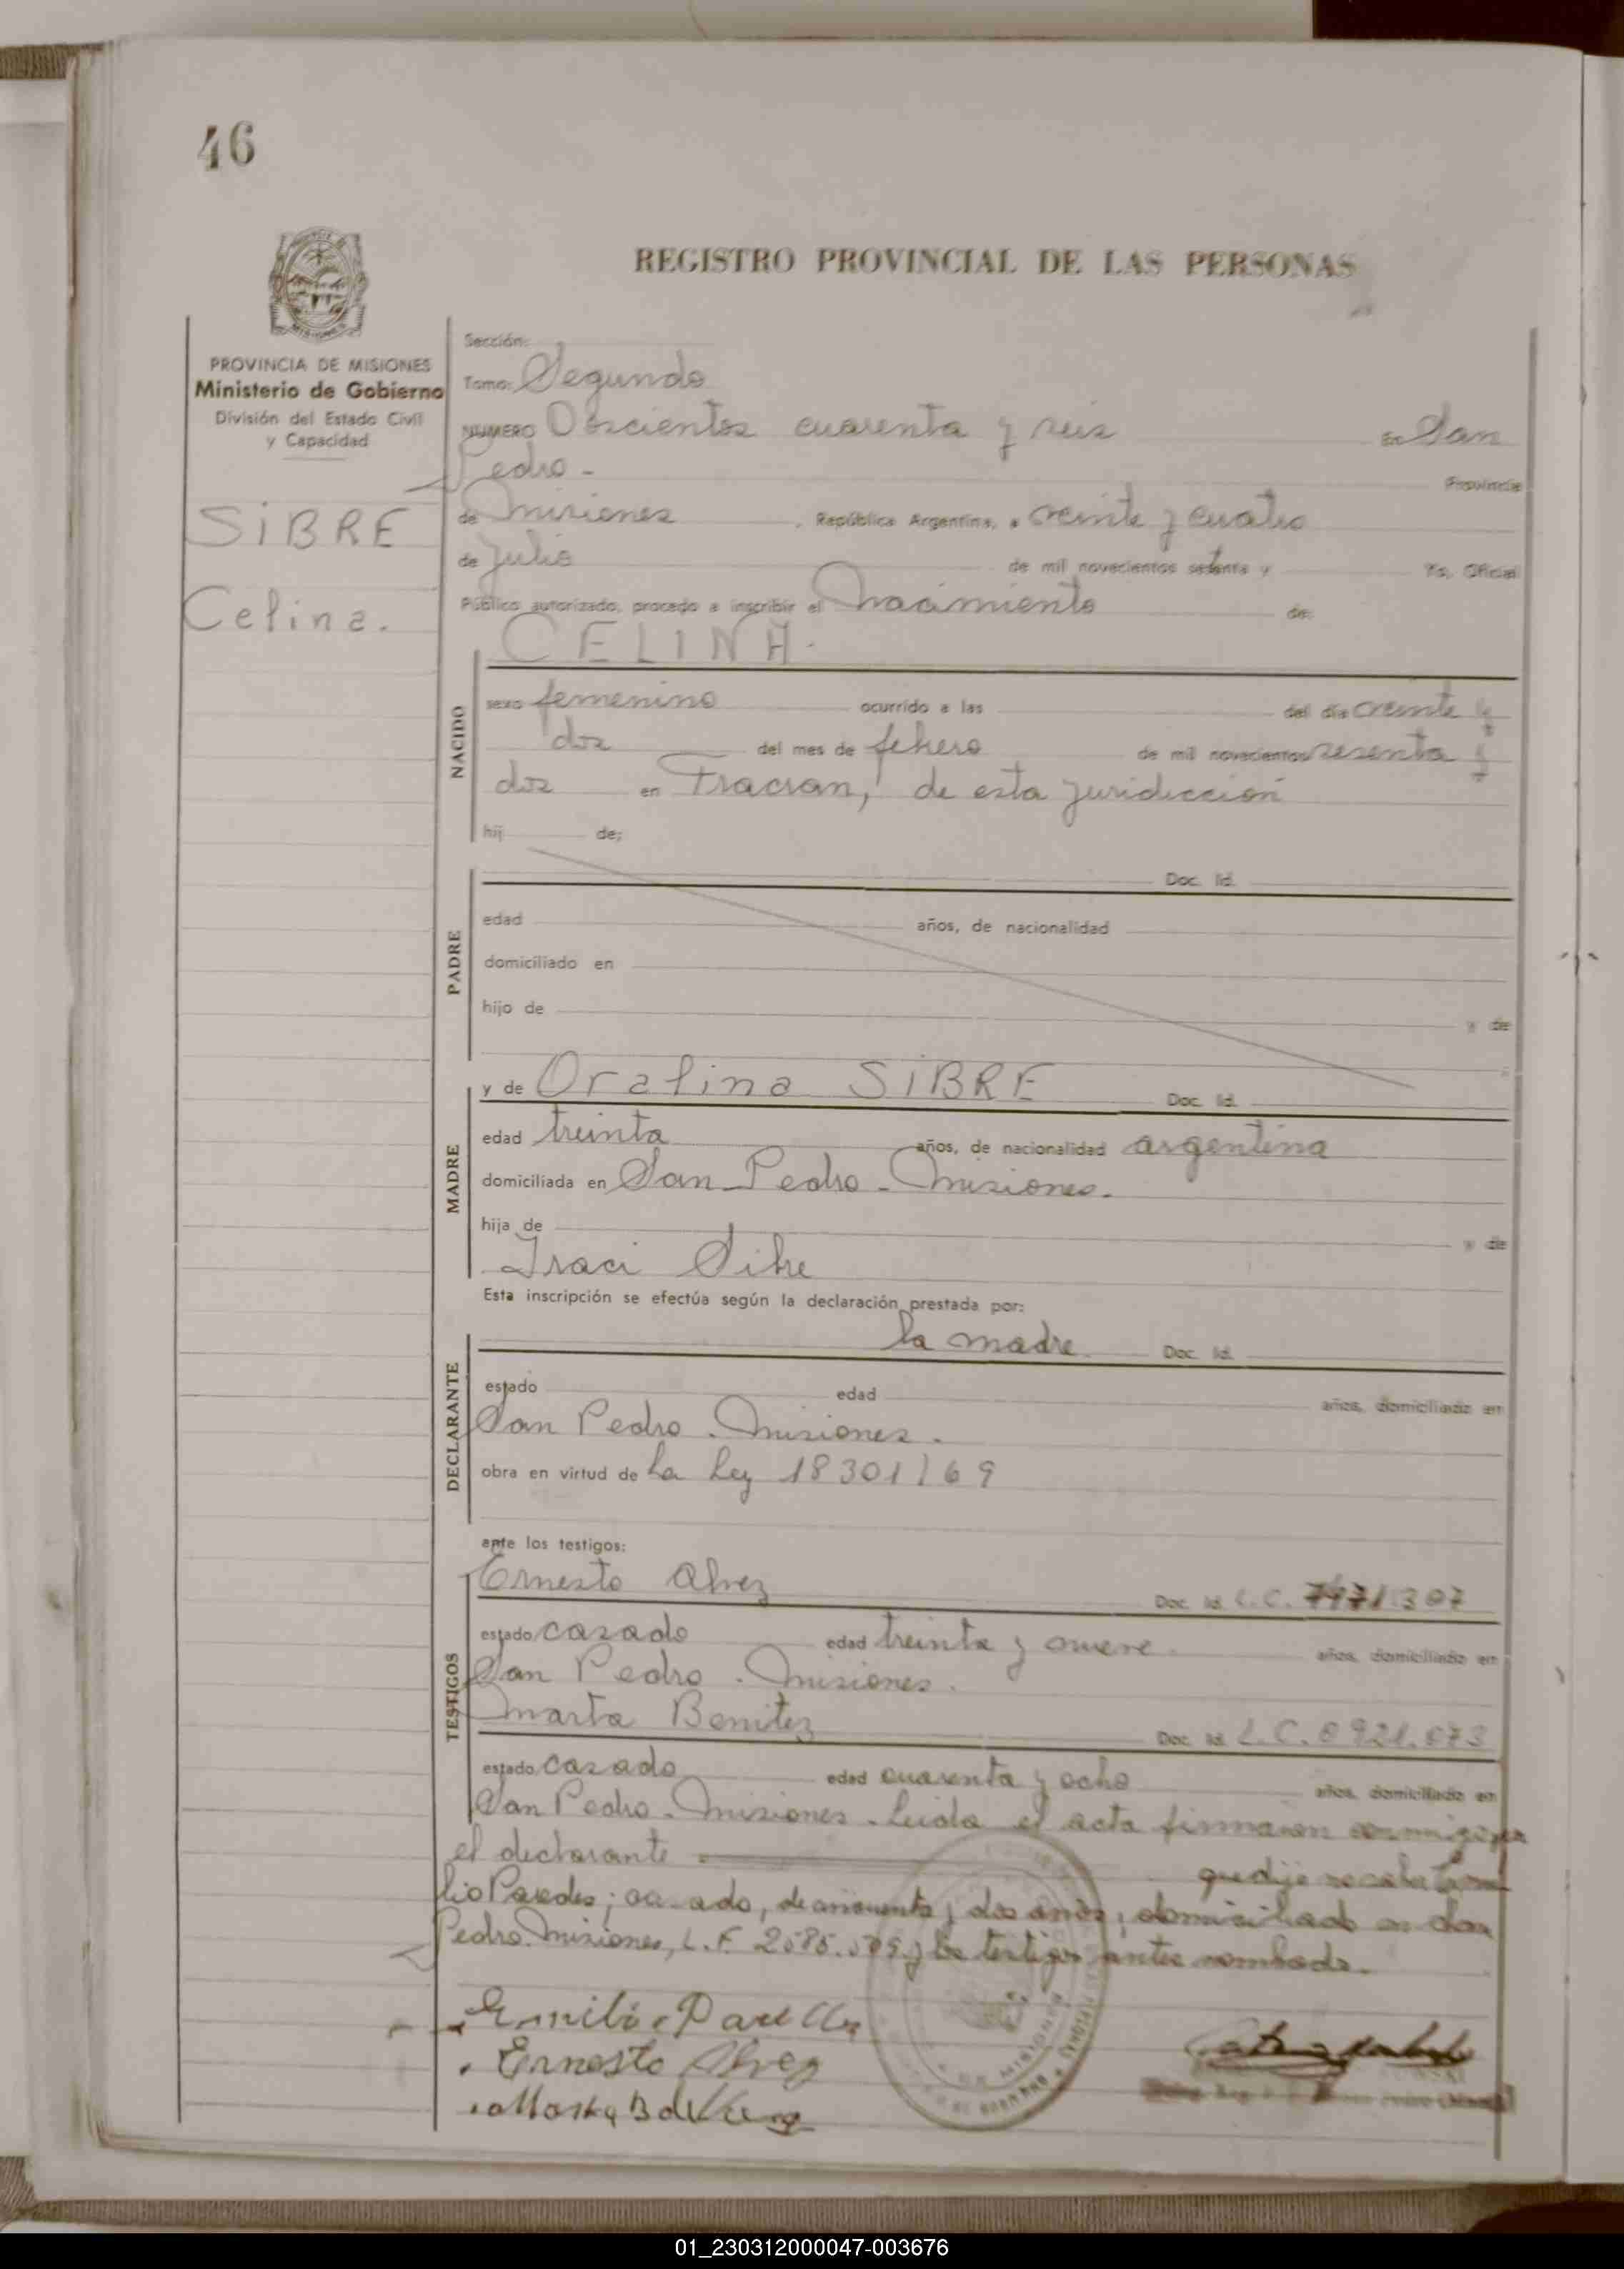 46
REGISTRO PROVINCIAL DE LAS PERSONAS
PROVINCIA DE MISIONES
Ministerio de Gobierno
División del Estado Civil
y Capacidad
SiBRE
Celina.
Sección:
Tomo: Segundo
NUMERO Doscientos cuarenta y seis En San
Pedro - Provincia
de Misiones, República Argentina, a veinte y cuatro
de Julio de mil novecientos setenta y Yo, Oficial
Público autorizado, procedo a inscribir el Nacimiento de:
CELINA.
NACIDO
sexo femenino ocurrido a las del día veinte y
dos del mes de febrero de mil novecientos sesenta y
dos en Fracran, de esta juridicción
hij de:
Doc. Id.
PADRE
edad años, de nacionalidad
domiciliado en
hijo de y de
y de Oralina SiBRE Doc. Id.
MADRE
edad treinta años, de nacionalidad argentina
domiciliada en San Pedro - Misiones.
hija de y de
Iraci Sibre
Esta inscripción se efectúa según la declaración prestada por:
la madre Doc. Id.
DECLARANTE
estado edad años, domiciliado en
San Pedro. Misiones.
obra en virtud de La Ley 18301/69
ante los testigos:
Ernesto Alvez Doc. Id. L.C.
TESTIGOS
estado casado edad treinta y nueve años, domiciliado en
San Pedro. Misiones.
Marta Benitez Doc. Id. L.C.
estado casado edad cuarenta y ocho años, domiciliado en
San Pedro - Misiones - Leida el acta firmaron conmigo
el declarante que dijo
lio Paredes; casado, de cincuenta y dos años, domiciliado en San
Pedro Misiones, y los testigos antes nombrado.
Ernesto Alvez
01_230312000047-003676